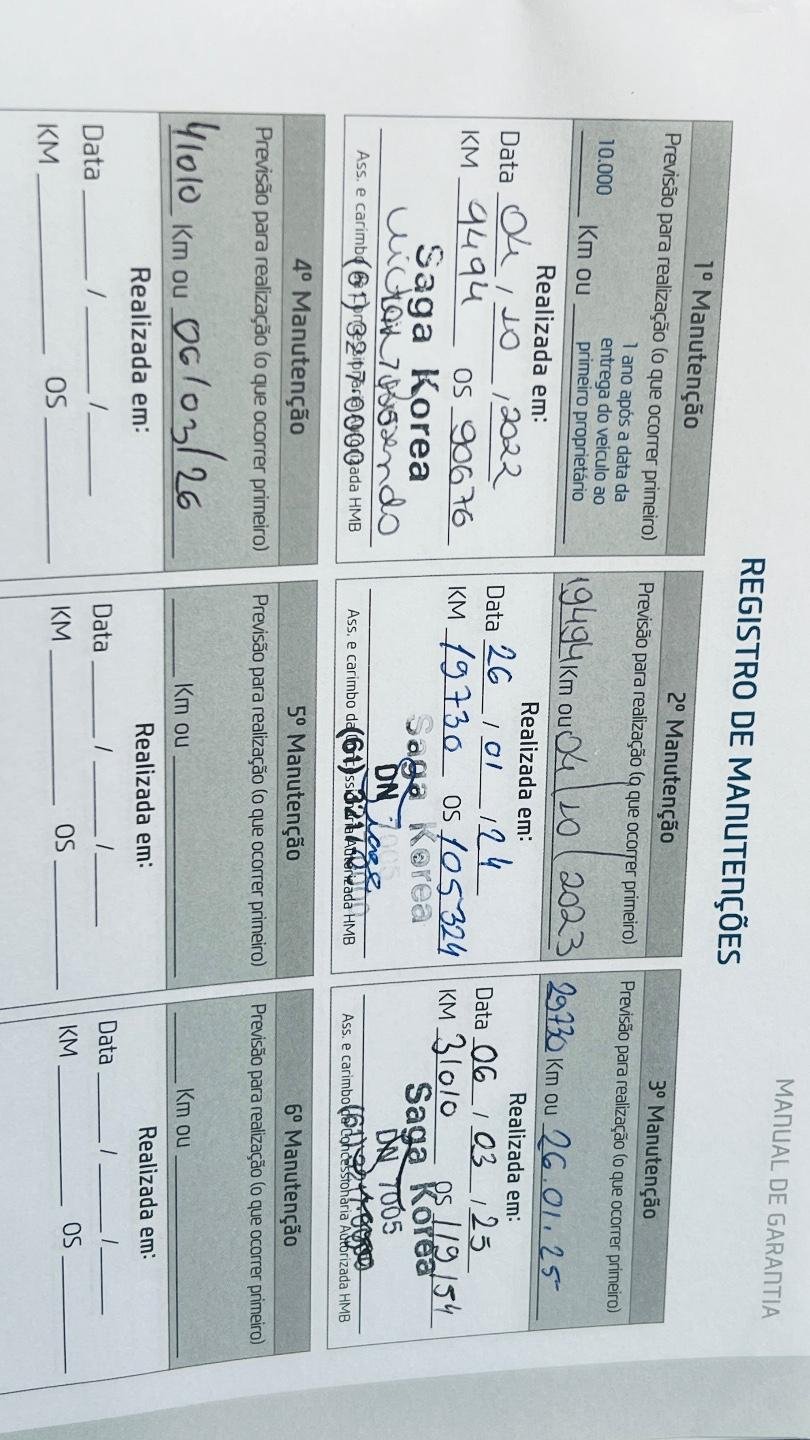 MANUAL DE GARANTIA
REGISTRO DE MANUTENÇÕES
1º Manutenção
Previsão para realização (o que ocorrer primeiro)
10.000 Km ou 1 ano após a data da
entrega do veículo ao
primeiro proprietário
Realizada em:
Data 04 / 10 / 2022
KM 9494 OS 90676
Saga Korea
Ass. e carimbo da Concessionária Autorizada HMB
2º Manutenção
Previsão para realização (o que ocorrer primeiro)
19494 Km ou 04/10/2023
Realizada em:
Data 26 / 01 / 24
KM 19730 OS 105324
Saga Korea
DN 7005
Ass. e carimbo da Concessionária Autorizada HMB
3º Manutenção
Previsão para realização (o que ocorrer primeiro)
29730 Km ou 26.01.25
Realizada em:
Data 06 / 03 / 25
KM 31010 OS 119154
Saga Korea
DN 7005
Ass. e carimbo da Concessionária Autorizada HMB
4º Manutenção
Previsão para realização (o que ocorrer primeiro)
41010 Km ou 06/03/26
Realizada em:
Data ____ / ____ / ____
KM ____ OS ____
5º Manutenção
Previsão para realização (o que ocorrer primeiro)
____ Km ou ____
Realizada em:
Data ____ / ____ / ____
KM ____ OS ____
6º Manutenção
Previsão para realização (o que ocorrer primeiro)
____ Km ou ____
Realizada em:
Data ____ / ____ / ____
KM ____ OS ____